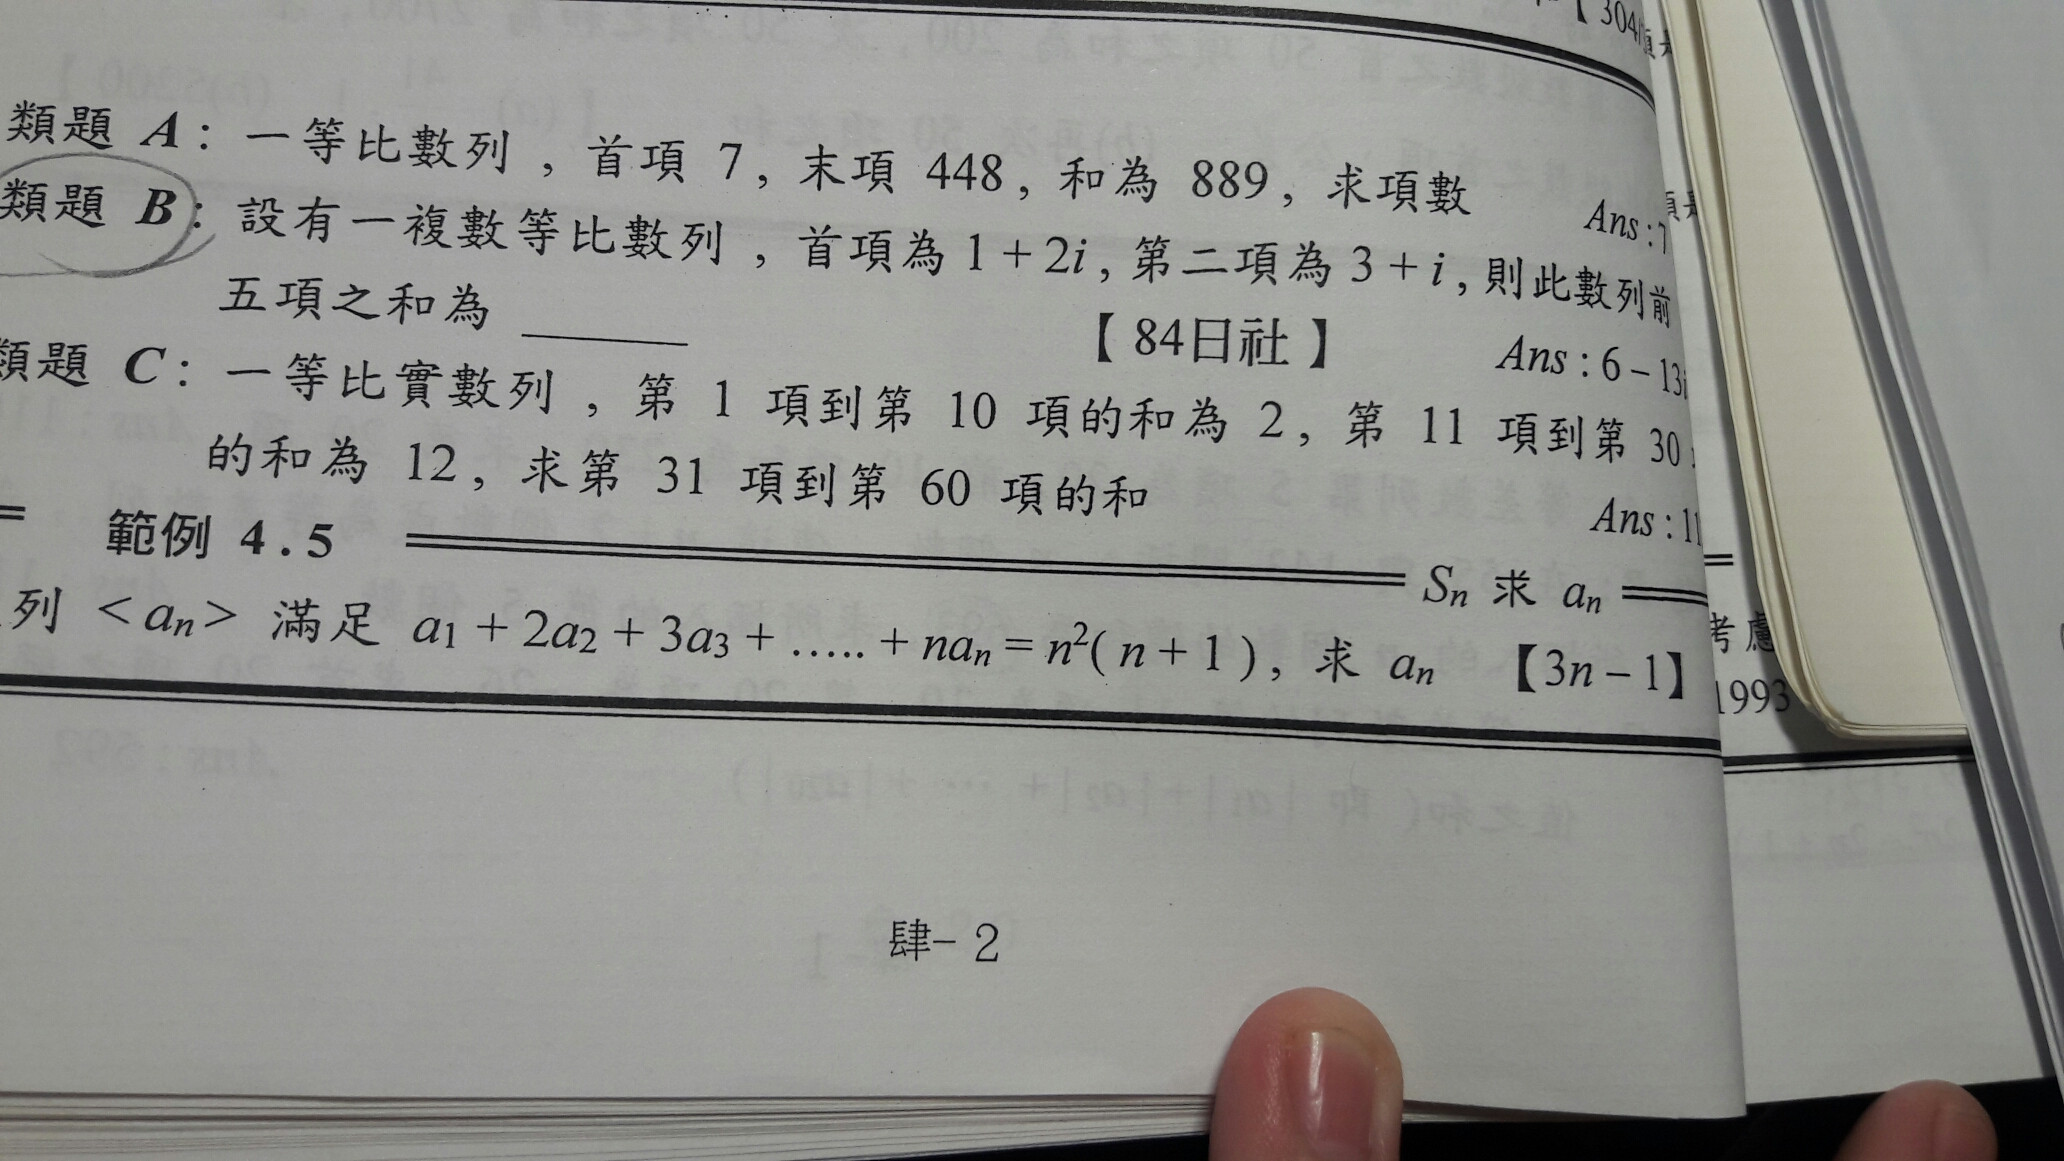 【304
類題 A：一等比數列，首項 7，末項 448，和為 889，求項數
Ans : 7
類題 B：設有一複數等比數列，首項為 1 + 2i，第二項為 3 + i，則此數列前
五項之和為 ______ 【84日社】 Ans : 6 – 13i
類題 C：一等比實數列，第 1 項到第 10 項的和為 2，第 11 項到第 30
的和為 12，求第 31 項到第 60 項的和
Ans : 11
範例 4.5 Sn 求 an
列 <an> 滿足 a1 + 2a2 + 3a3 + ..... + nan = n²( n + 1 )，求 an 【3n – 1】
考慮
1993
肆- 2